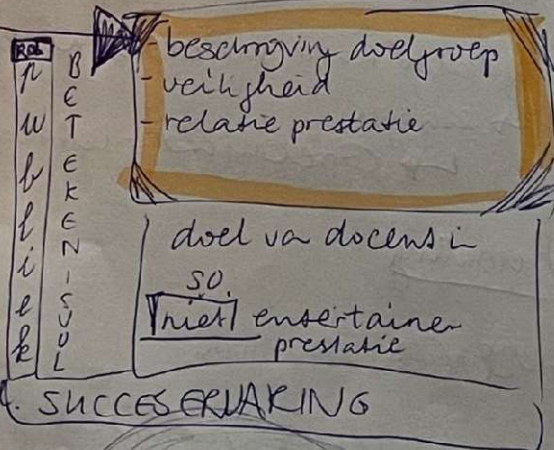 Rob
publiek
BETEKENISVOL
- beschrijving doelgroep
- veiligheid
- relatie prestatie
doel va docent i
SO.
niet entertainen
prestatie
SUCCESERVARING